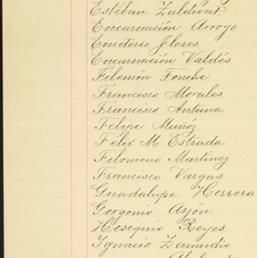 Estéban Zaldivar
Encarnación Arroyo
Emeterio Flores
Encarnación Valdés
Filemón Fonche
Francisco Morales
Francisco Antuna
Felipe Muñoz
Félix M. Estrada
Filomeno Martínez
Francisco Vargas
Guadalupe Herrera
Gorgonio Arjón
Hesiquio Reyes
Ignacio Zamudio